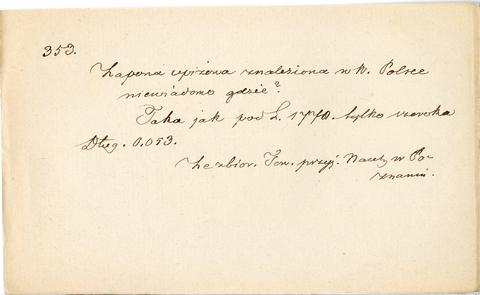 353.
Zapona spiżowa znaleziona w k. Polsce
niewiadomo gdzie?
Taka jak pod L. 1770. tylko szeroka
Dług. 0.053.
Ze zbior. Tow. przyj. Nauk w Po-
znaniu.